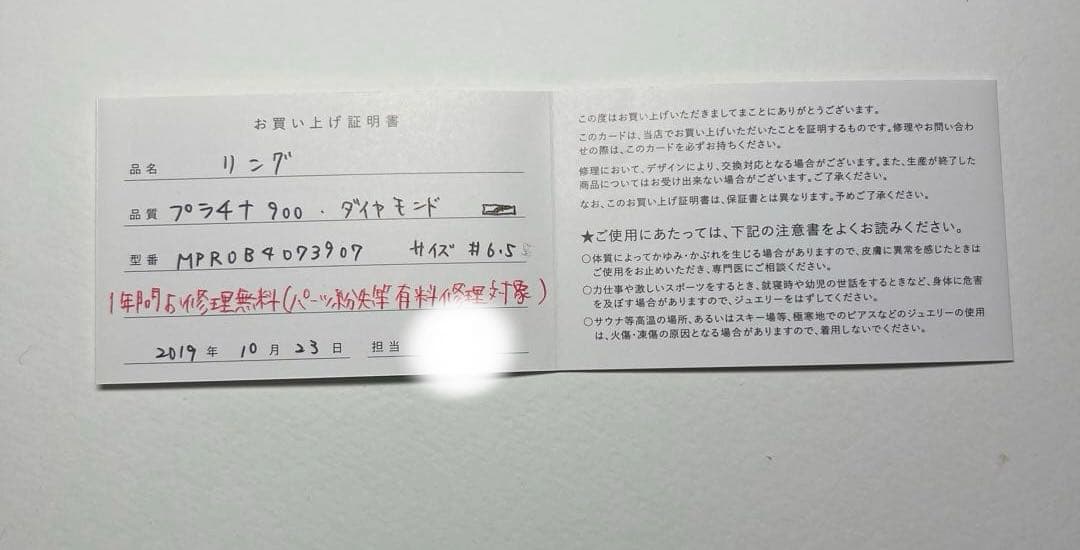 お買い上げ証明書
品名 リング
品質 プラチナ900・ダイヤモンド
型番 MPROB4073907 サイズ #6.5
1年間お修理無料(パーツ紛失等有料修理対象)
2019年10月23日 担当
この度はお買い上げいただきましてまことにありがとうございます。
このカードは、当店でお買い上げいただいたことを証明するものです。修理やお問い合わ
せの際は、このカードを必ずお持ちください。
修理において、デザインにより、交換対応となる場合がございます。また、生産が終了した
商品についてはお受け出来ない場合がございます。ご了承ください。
なお、このお買い上げ証明書は、保証書とは異なります。予めご了承ください。
★ご使用にあたっては、下記の注意書をよくお読みください。
○体質によってかゆみ・かぶれを生じる場合がありますので、皮膚に異常を感じたときは
ご使用をお止めいただき、専門医にご相談ください。
○力仕事や激しいスポーツをするとき、就寝時や幼児の世話をするときなど、身体に危害
を及ぼす場合がありますので、ジュエリーをはずしてください。
○サウナ等高温の場所、あるいはスキー場等、極寒地でのピアスなどのジュエリーの使用
は、火傷・凍傷の原因となる場合がありますので、着用しないでください。